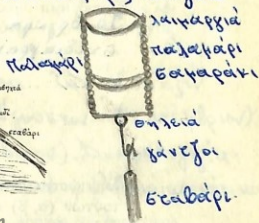 λαιμαργιά
παλαμάρι
Παλαμάρι
σαμαράκι
θηλειά
γάντζοι
σταβάρι.
σταβάρι